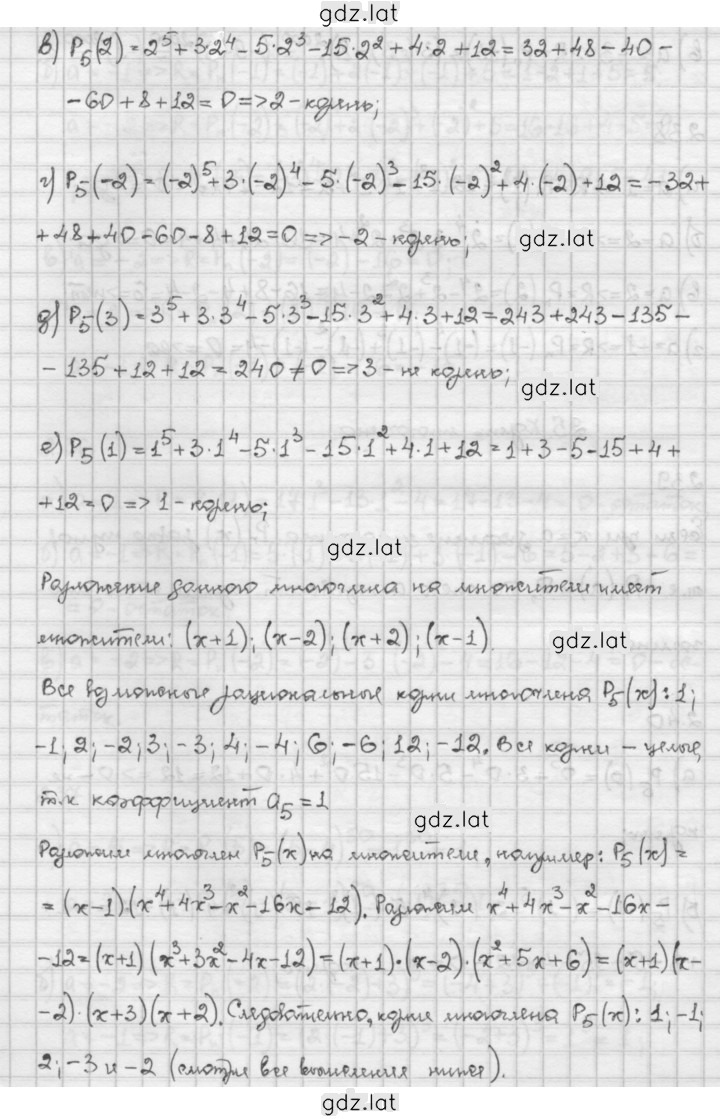 gdz.lat
в) P₅(2) = 2⁵ + 3·2⁴ - 5·2³ - 15·2² + 4·2 + 12 = 32 + 48 - 40 -
- 60 + 8 + 12 = 0 => 2 - корень;
г) P₅(-2) = (-2)⁵ + 3·(-2)⁴ - 5·(-2)³ - 15·(-2)² + 4·(-2) + 12 = -32 +
+ 48 + 40 - 60 - 8 + 12 = 0 => -2 - корень;
gdz.lat
д) P₅(3) = 3⁵ + 3·3⁴ - 5·3³ - 15·3² + 4·3 + 12 = 243 + 243 - 135 -
- 135 + 12 + 12 = 240 ≠ 0 => 3 - не корень;
gdz.lat
е) P₅(1) = 1⁵ + 3·1⁴ - 5·1³ - 15·1² + 4·1 + 12 = 1 + 3 - 5 - 15 + 4 +
+ 12 = 0 => 1 - корень;
gdz.lat
Разложение данного многочлена на множители имеет
множители: (x+1); (x-2); (x+2); (x-1).
gdz.lat
Все возможные рациональные корни многочлена P₅(x): 1;
-1; 2; -2; 3; -3; 4; -4; 6; -6; 12; -12. Все корни - целые,
т.к коэффициент a₅ = 1
gdz.lat
Разложим многочлен P₅(x) на множители, например: P₅(x) =
= (x-1)(x⁴ + 4x³ - x² - 16x - 12). Разложим x⁴ + 4x³ - x² - 16x -
- 12 = (x+1)(x³ + 3x² - 4x - 12) = (x+1)·(x-2)·(x² + 5x + 6) = (x+1)(x-
-2)·(x+3)(x+2). Следовательно, корни многочлена P₅(x): 1; -1;
2; -3 и -2 (смотри все вычисления ниже).
gdz.lat